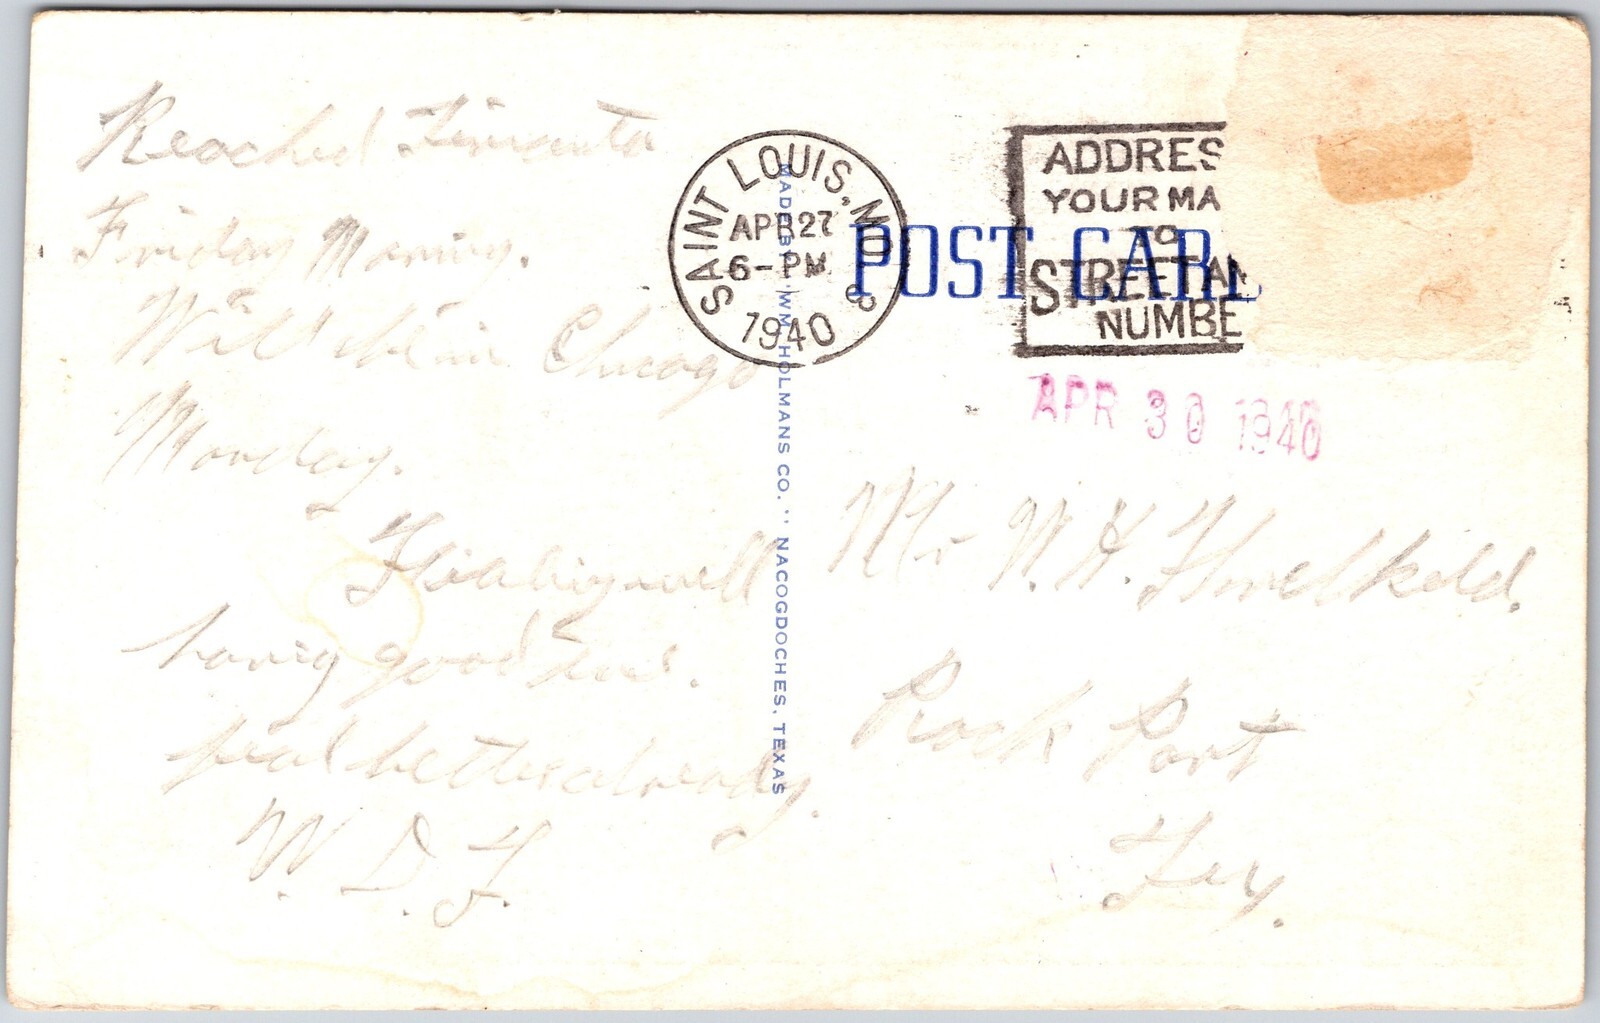 Reached
Friday Morning.
Will be in Chicago
Monday.
well
having good
feal better already.
W. D. T.
SAINT LOUIS, MO. 8
APR 27
6-PM
1940
MADE BY "WM. HOLMANS CO." NACOGDOCHES, TEXAS
POST CARD
ADDRES
YOUR MA
TO
STREET AN
NUMBE
APR 30 1940
Mr N. H. Threlkeld.
Rock Port
Tex.